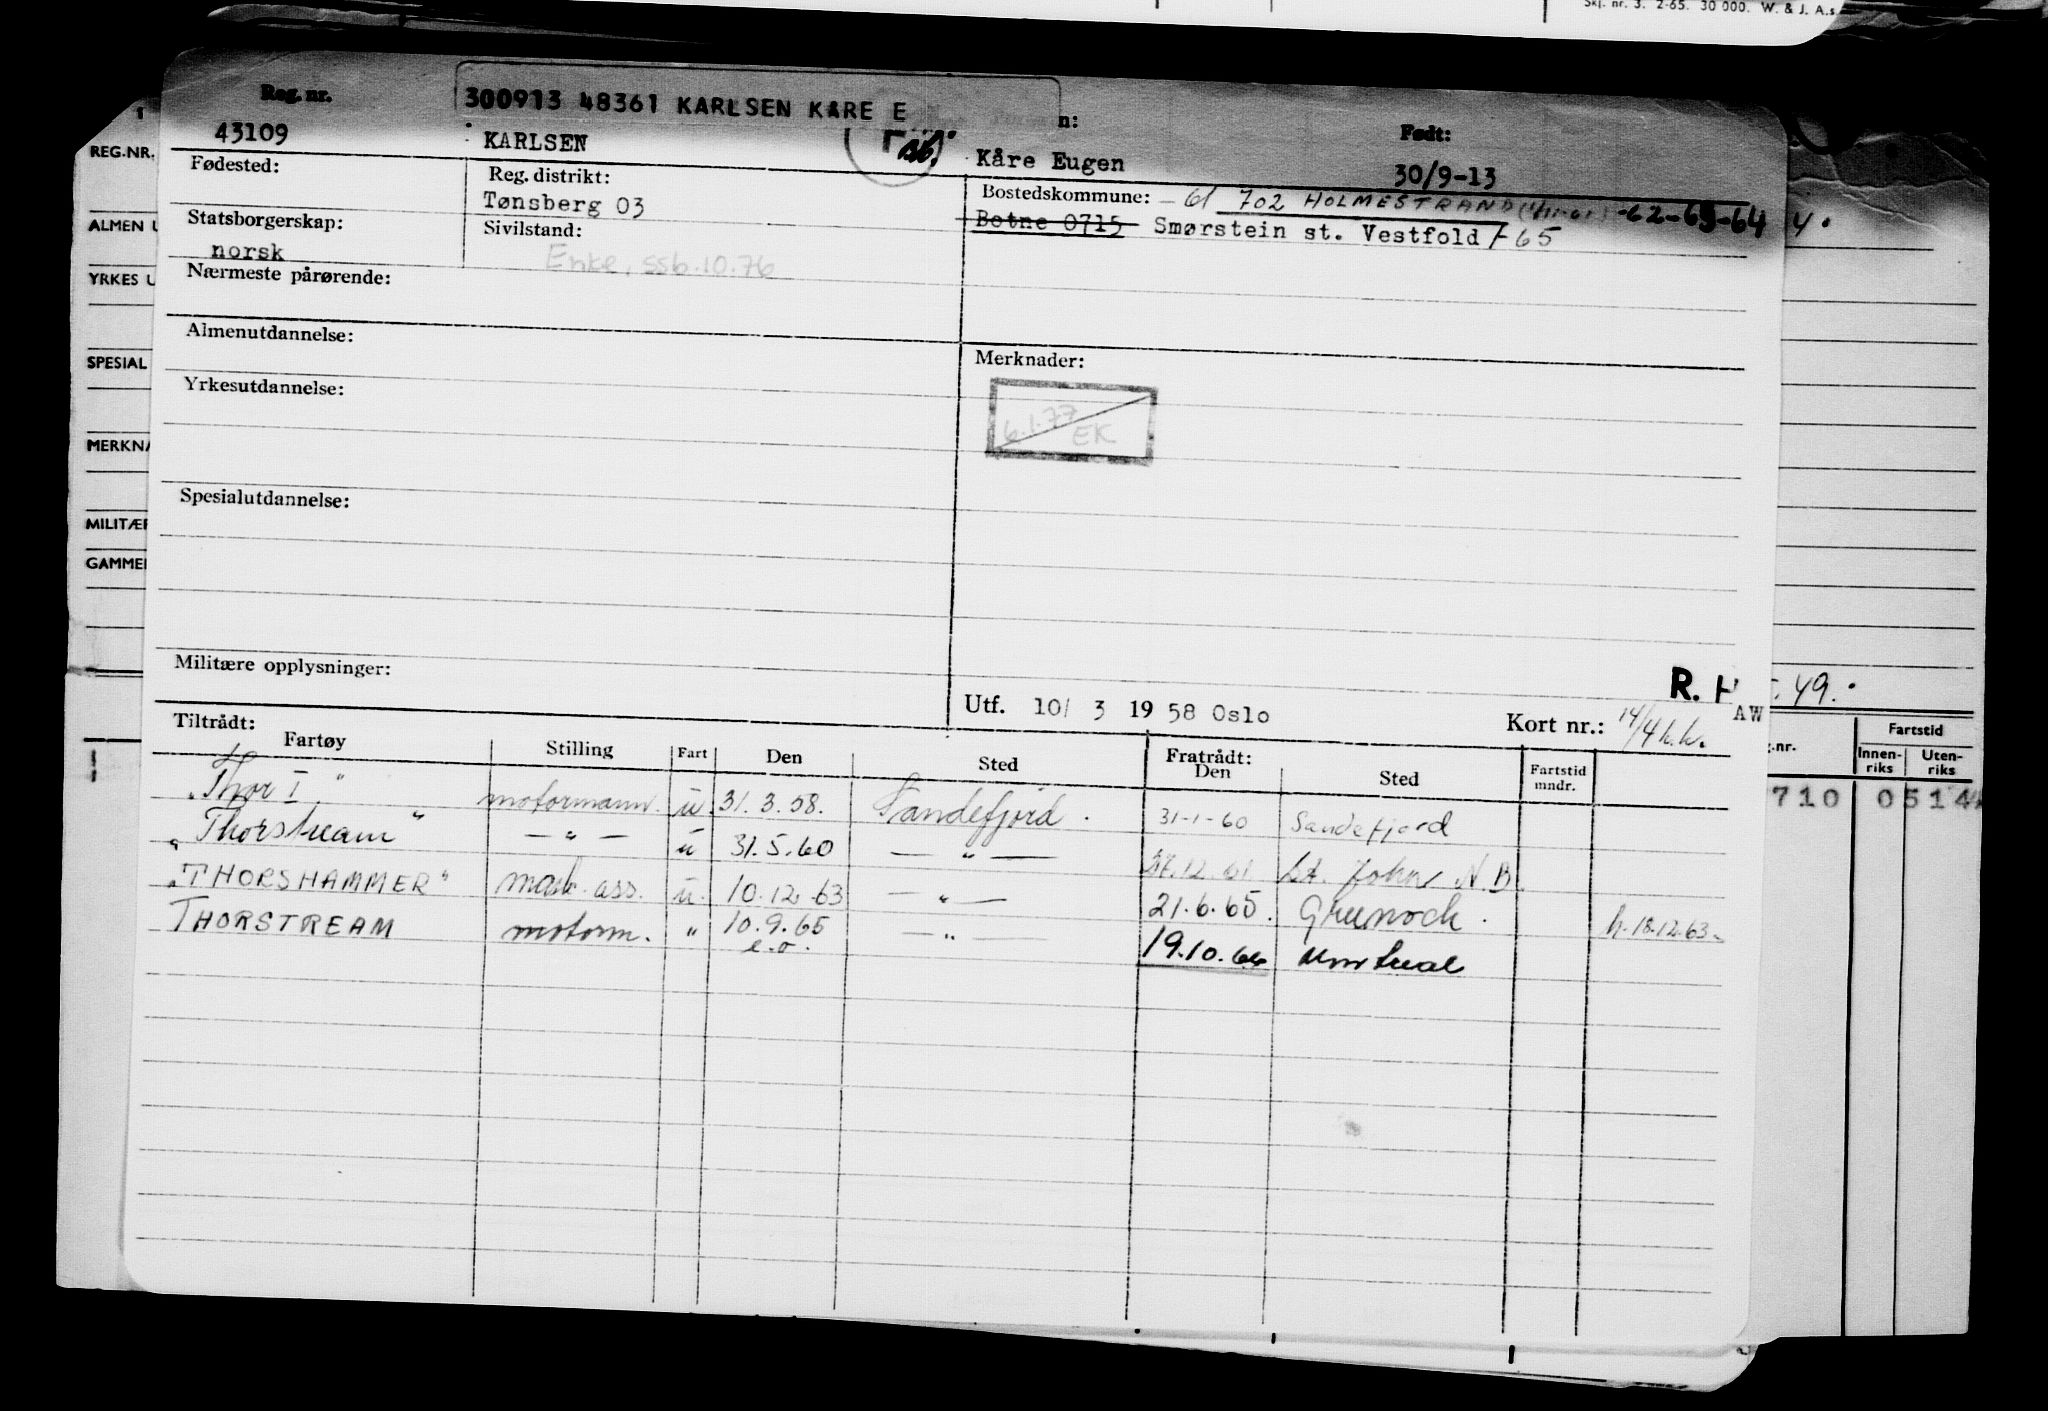 Skj. nr. 3. 2-65. 30 000. W. & J. A.s
Reg. nr. 300913 48361 KARLSEN KARE E n: Født:
43109 KARLSEN Kåre Eugen 30/9-13
REG.NR.
Fødested: Reg. distrikt: Bostedskommune: - 61 702 HOLMESTRAND -62-63-64 4.
Tønsberg 03
ALMEN U Statsborgerskap: Sivilstand: Botne 0715 Smørstein st. Vestfold - 65
norsk Enke, ssb. 10.76
YRKES U Nærmeste pårørende:
Almenutdannelse: Merknader:
SPESIAL
Yrkesutdannelse: 6.1.77 EK
MERKNA
Spesialutdannelse:
MILITÆR
GAMMEL
Militære opplysninger: R. H 49.
Utf. 10/ 3 19 58 Oslo Kort nr.: 14/4 k.k. AW
Tiltrådt: Fratrådt:
Fartøy Stilling Fart Den Sted Den Sted Fartstid mndr. g.nr. Fartstid
Innen-riks Uten-riks
"Thor I" motormann. u. 31.3.58. Sandefjord. 31-1-60 Sandefjord 710 0514
"Thorstream" — " — u 31.5.60 — " — 12.61 St. John N.B.
"THORSHAMMER" mask. ass. u. 10.12.63 — " — 21.6.65. Greenock. h. 18.12.63.
THORSTREAM motorm. " 10.9.65 — " — 19.10.66 Montreal
e.o.